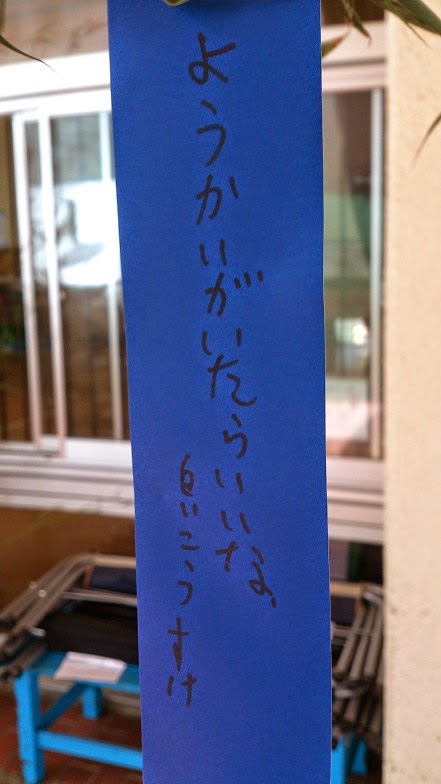 ようかいがいたらいいな
白いこうすけ